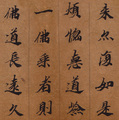 來亦復如是
煩惱惡道險
一佛乘者則
佛道長遠久